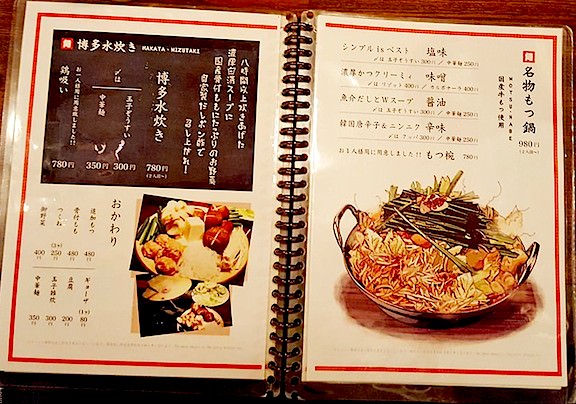 博多水炊き HAKATA・MIZUTAKI
八時間以上炊きあげた
濃厚白濁スープに
国産骨付ももにたっぷりのお野菜
自家製だしポン酢で
召し上がれ!
博多水炊き
780円
(2人前〜)
〆は
玉子ぞうすい 300円
中華麺 350円
お1人様用に用意致しました!!
鶏吸い 780円
おかわり
追加もつ 480円
骨付もも 480円
つくね (3ヶ) 250円
御野菜 400円
ギョーザ (1ヶ) 80円
豆腐 200円
玉子雑炊 300円
中華麺 350円
名物もつ鍋
MOTSU・NABE
国産牛もつ使用
980円
(2人前〜)
シンプル is ベスト 塩味
〆は 玉子ぞうすい 300円 / 中華麺 250円
濃厚かつクリーミィ 味噌
〆は リゾット 400円 / カルボナーラ 400円
魚介だしとWスープ 醤油
〆は 玉子ぞうすい 300円 / 中華麺 250円
韓国唐辛子&ニンニク 辛味
〆は クッパ 300円 / 中華麺 250円
お1人様用に用意しました!! もつ椀 780円